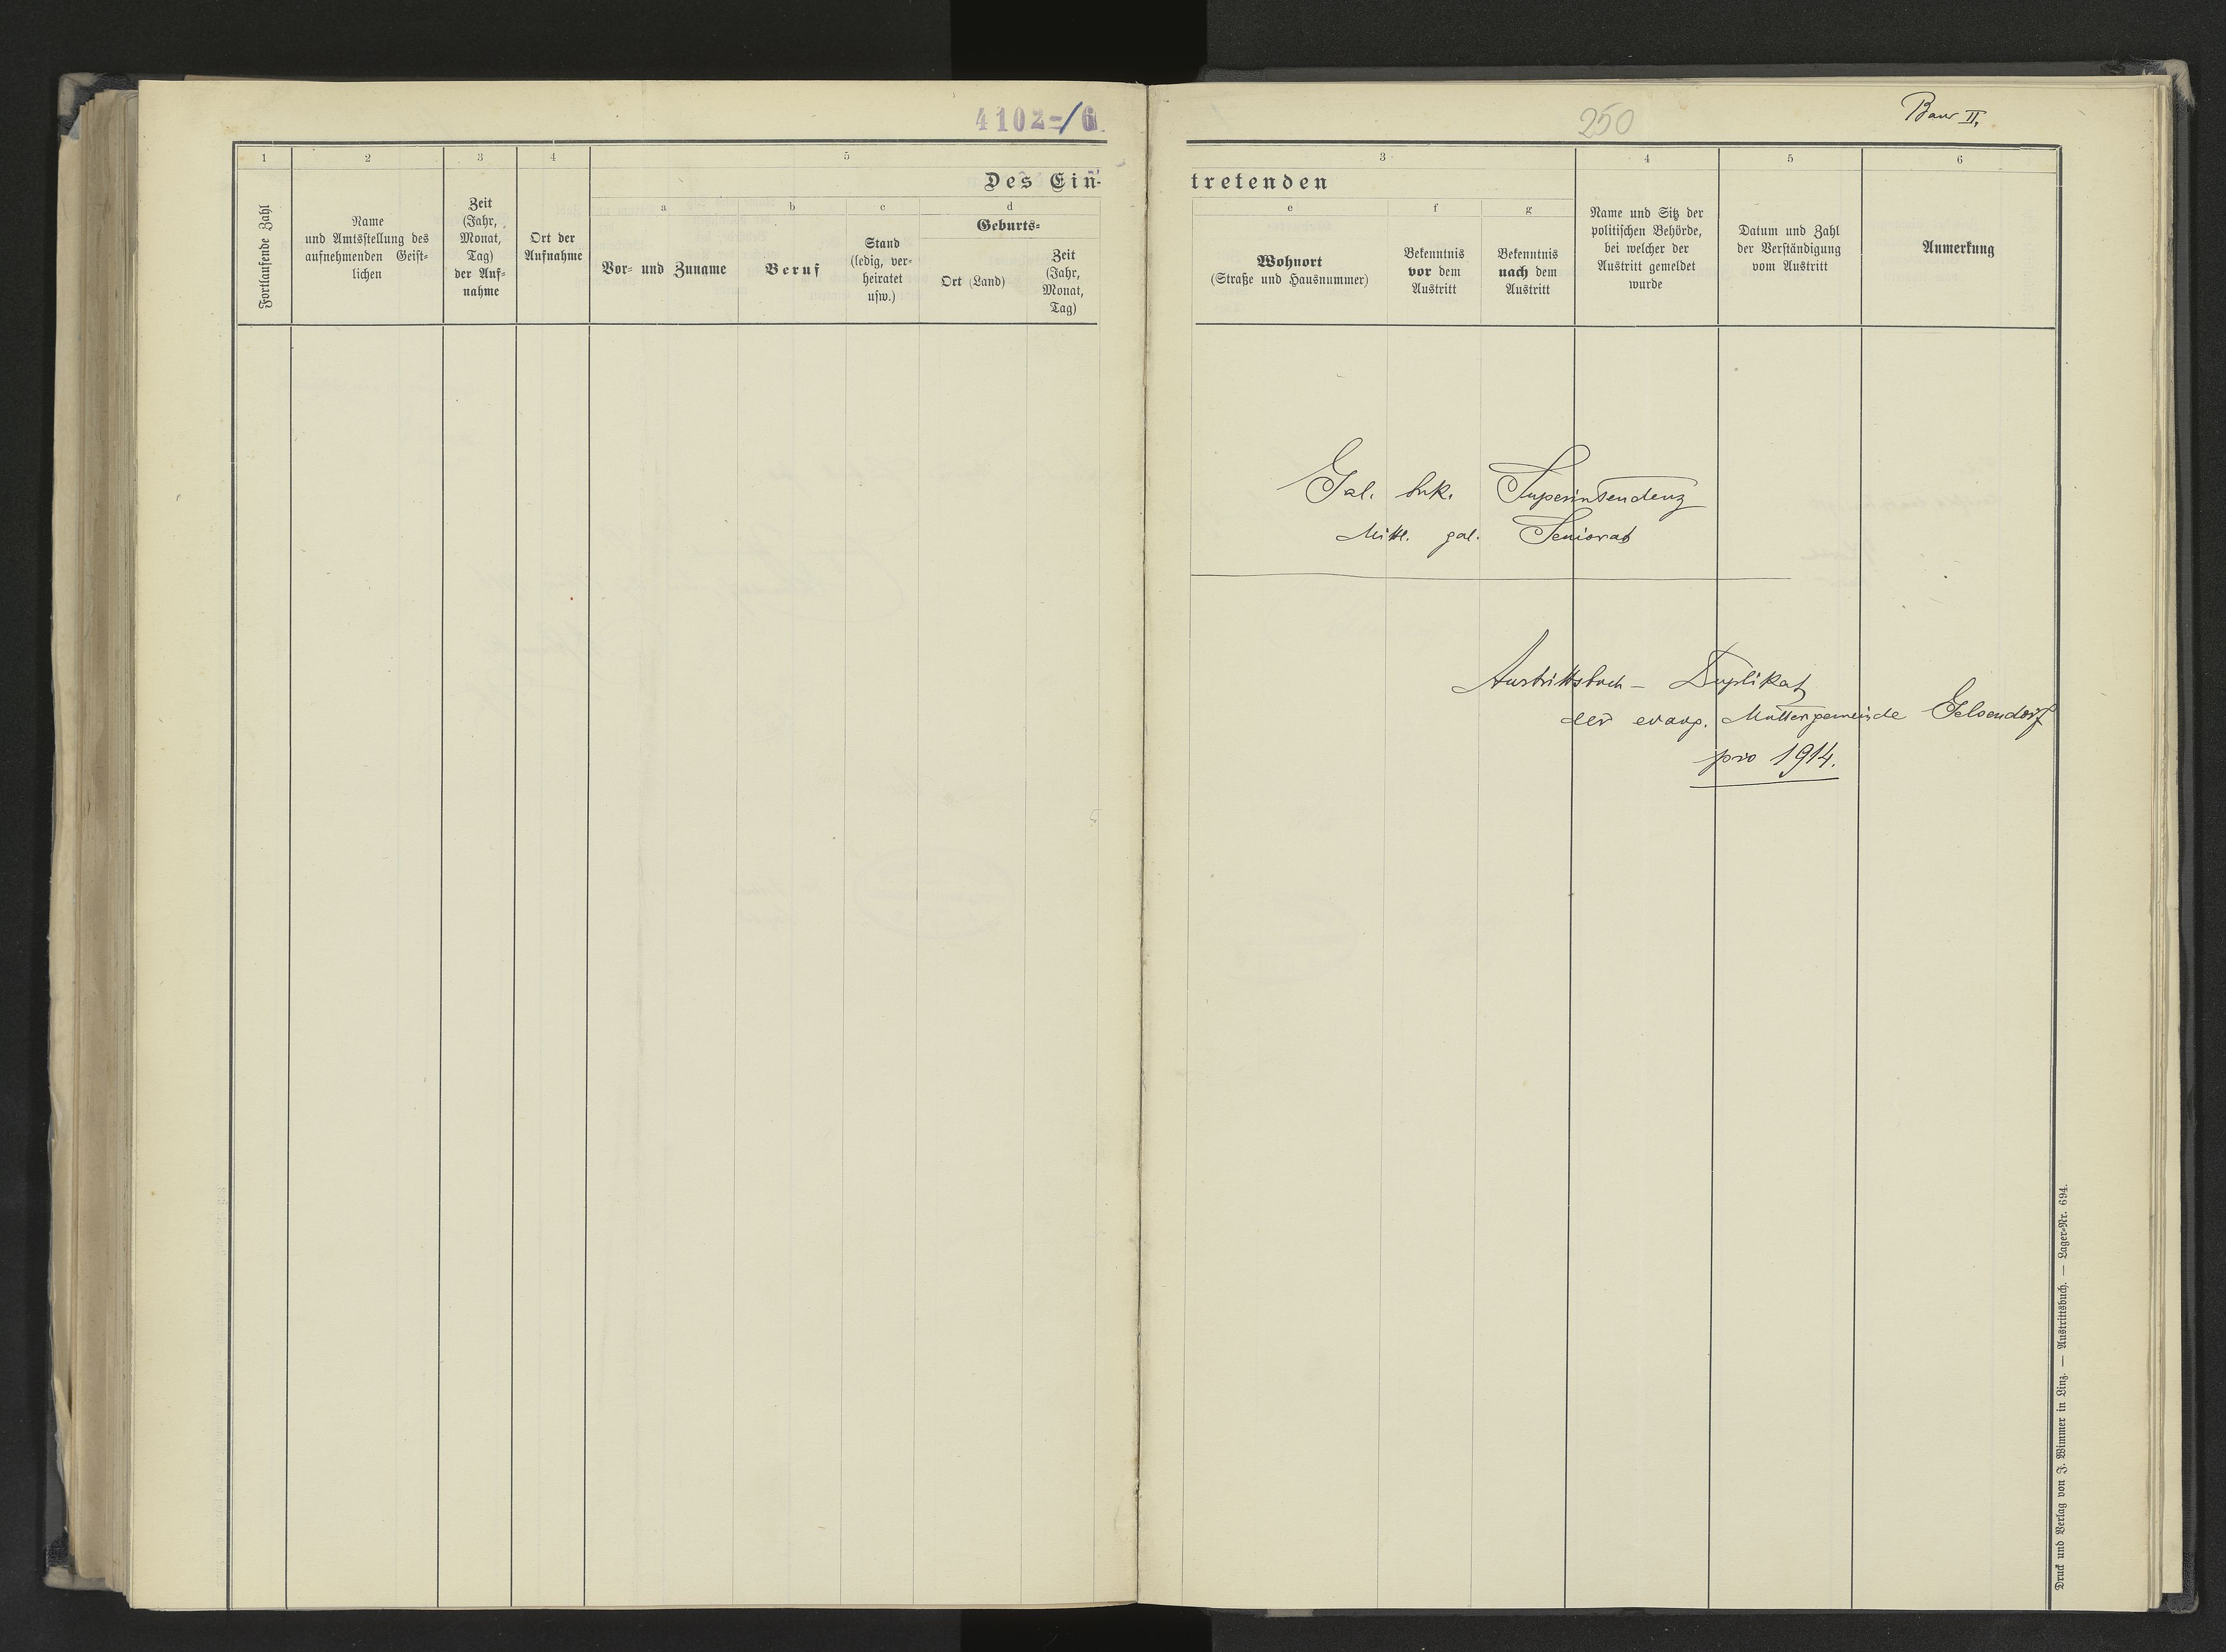 4102=/6.
1
2
3
4
5
Des Ein-
Fortlaufende Zahl
Name
und Amtsstellung des
aufnehmenden Geist-
lichen
Zeit
(Jahr,
Monat,
Tag)
der Auf-
nahme
Ort der
Aufnahme
a
b
c
d
Vor- und Zuname
Beruf
Stand
(ledig, ver-
heiratet
usw.)
Geburts-
Ort (Land)
Zeit
(Jahr,
Monat,
Tag)
250
Baur II,
3
4
5
6
tretenden
e
f
g
Wohnort
(Straße und Hausnummer)
Bekenntnis
vor dem
Austritt
Bekenntnis
nach dem
Austritt
Name und Sitz der
politischen Behörde,
bei welcher der
Austritt gemeldet
wurde
Datum und Zahl
der Verständigung
vom Austritt
Anmerkung
Gal. buk. Superintendenz
Mittl. gal. Seniorat
Austrittsbuch - Duplikat
der evang. Muttergemeinde Gelsendorf
pro 1914.
Druck und Verlag von J. Wimmer in Linz. — Austrittsbuch. — Lager-Nr. 694.